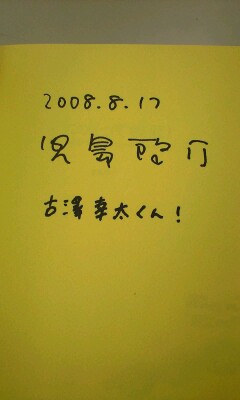 2008.8.17
児島
古澤幸太くん!